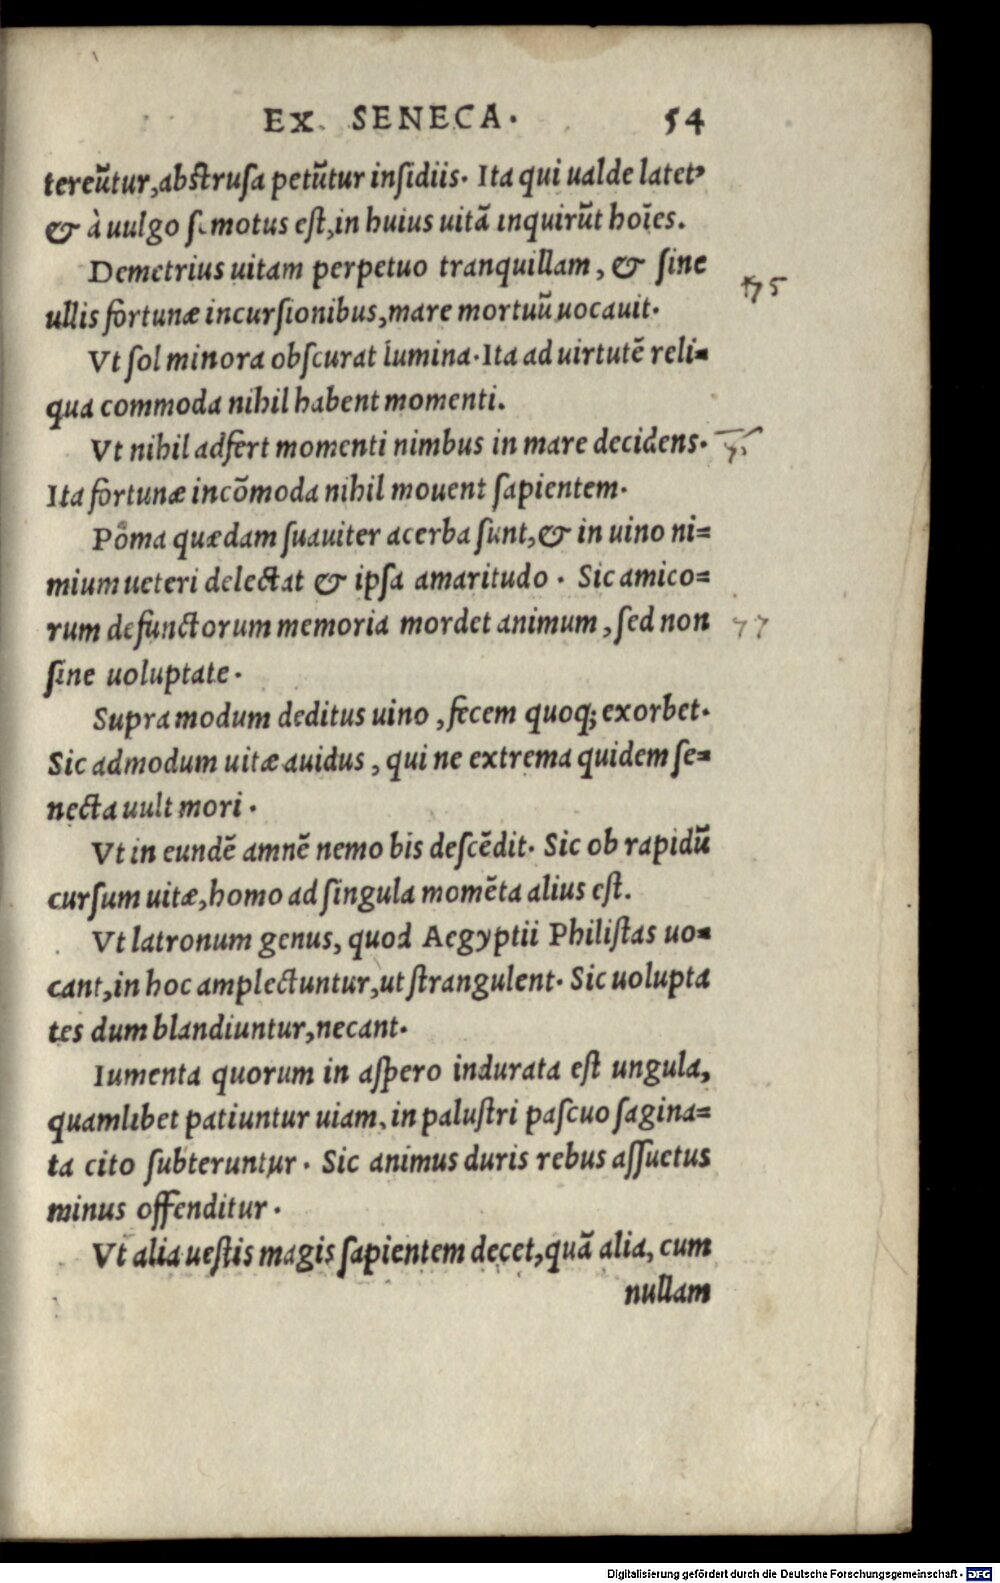 EX SENECA. 54
tereũtur, abstrusa petũtur insidiis. Ita qui ualde latet,
& à uulgo semotus est, in huius uitã inquirũt hoĩes.
Demetrius uitam perpetuo tranquillam, & sine
75
ullis fortunæ incursionibus, mare mortuũ uocauit.
Vt sol minora obscurat lumina. Ita ad uirtutẽ reli=
qua commoda nihil habent momenti.
Vt nihil adfert momenti nimbus in mare decidens.
Ita fortunæ incõmoda nihil mouent sapientem.
Poma quædam suauiter acerba sunt, & in uino ni=
mium ueteri delectat & ipsa amaritudo. Sic amico=
rum defunctorum memoria mordet animum, sed non 77
sine uoluptate.
Supra modum deditus uino, fecem quoq; exorbet.
Sic admodum uitæ auidus, qui ne extrema quidem se=
necta uult mori.
Vt in eundẽ amnẽ nemo bis descẽdit. Sic ob rapidũ
cursum uitæ, homo ad singula momẽta alius est.
Vt latronum genus, quod Aegyptii Philistas uo=
cant, in hoc amplectuntur, ut strangulent. Sic uolupta
tes dum blandiuntur, necant.
Iumenta quorum in aspero indurata est ungula,
quamlibet patiuntur uiam, in palustri pascuo sagina=
ta cito subteruntur. Sic animus duris rebus assuetus
minus offenditur.
Vt alia uestis magis sapientem decet, quã alia, cum
nullam
Digitalisierung gefördert durch die Deutsche Forschungsgemeinschaft - DFG